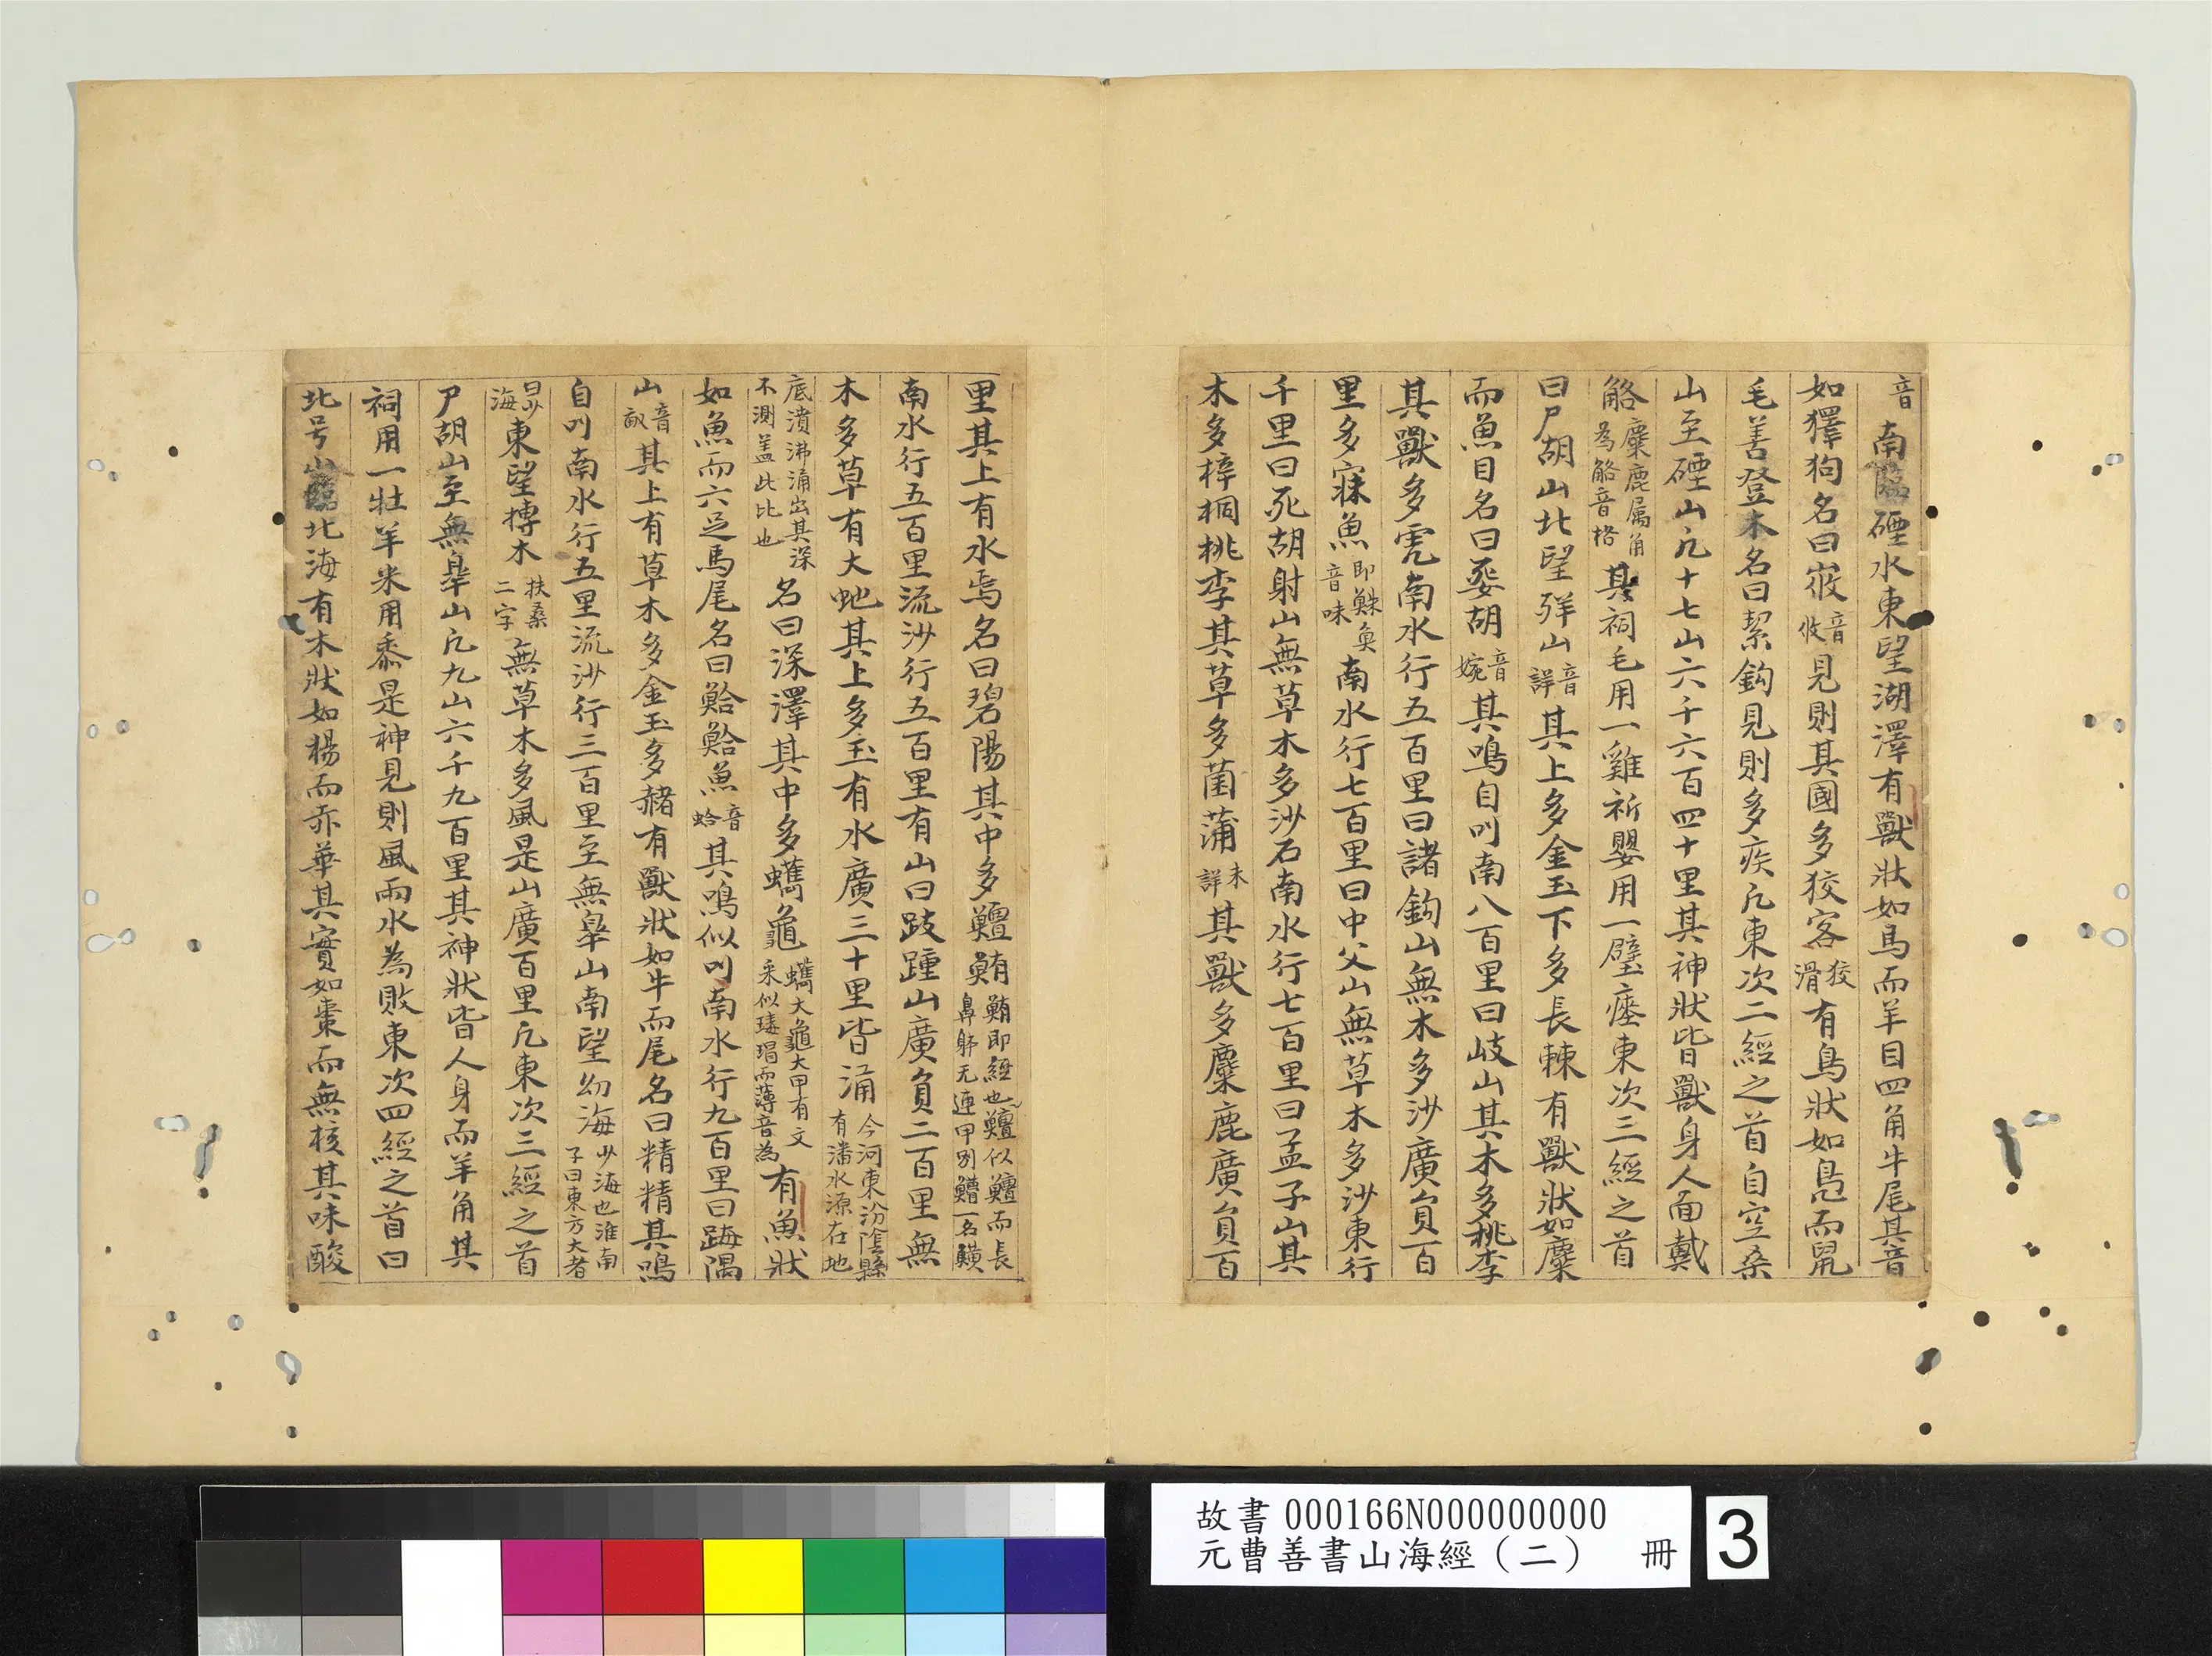 音南臨䃌水東望湖澤有獸狀如馬而羊目四角牛尾其音
如獋狗名曰峳音攸見則其國多狡客狡滑有鳥狀如鳧而鼠
毛善登木名曰絜鈎見則多疾凡東次二經之首自空桑
山至䃌山凡十七山六千六百四十里其神狀皆獸身人面戴
觡麋鹿属角為觡音格其祠毛用一雞祈嬰用一璧瘞東次三經之首
曰尸胡山北望䍧山音詳其上多金玉下多長棘有獸狀如麋
而魚目名曰妴胡音婉其鳴自叫南八百里曰岐山其木多桃李
其獸多虎南水行五百里曰諸鈎山無木多沙廣貟百
里多寐魚即鮇魚音味南水行七百里曰中父山無草木多沙東行
千里曰死胡射山無草木多沙石南水行七百里曰孟子山其
木多梓桐桃李其草多菌蒲未詳其獸多麋鹿廣貟百
里其上有水焉名曰碧陽其中多鱣鮪鮪即䱍也鱣似鱣而長鼻躰无連甲別鱣一名鱑
南水行五百里流沙行五百里有山曰跂踵山廣貟二百里無
木多草有大虵其上多玉有水廣三十里皆涌今河東汾陰縣有潘水源在地
底濆沸涌出其深不測盖此比也名曰深澤其中多蠵龜蠵大龜大甲有文采似瑇瑁而薄音為有魚狀
如魚而六足馬尾名曰鮯鮯魚音蛤其鳴似叫南水行九百里曰踇隅
山音敏其上有草木多金玉多赭有獸狀如牛而尾名曰精精其鳴
自叫南水行五里流沙行三百里至無皐山南望幼海少海也淮南子曰東方大者
曰少海東望摶木扶桑二字無草木多風是山廣百里凡東次三經之首
尸胡山至無皐山凡九山六千九百里其神狀皆人身而羊角其
祠用一牡羊米用黍是神見則風雨水為敗東次四經之首曰
北号山臨北海有木狀如楊而赤華其實如棗而無核其味酸
故書 000166N000000000
元曹善書山海經（二） 冊
3